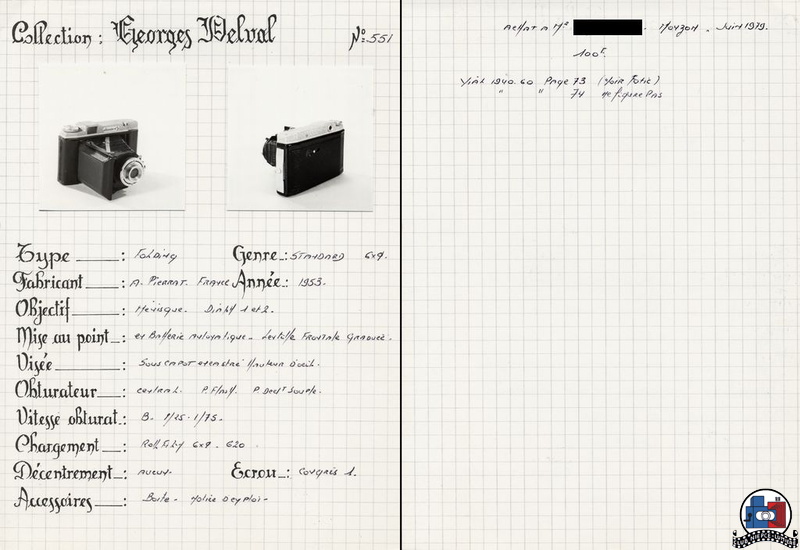 Collection : Georges Delval N° 551
Type : Folding Genre : STANDARD 6x9.
Fabricant : A. Pierrat. France Année : 1953.
Objectif : Ménisque. Diaph 1 et 2.
Mise au point : et Batterie Automatique - Lentille Frontale Graduée -
Visée : Sous capot Hauteur d'oeil.
Obturateur : central. P. Flash. P. Decl^t Souple.
Vitesse obturat. : B - 1/25 - 1/75 -
Chargement : Roll Film 6x9 - 620
Décentrement : Aucun - Ecrou : Congrès 1.
Accessoires : Boite - Notice D'emploi -
Achat a M^r . Mouzon . Juin 1979.
100^F.
Vial 1940.60 Page 73 (Voir Foties)
" " 74 ne figure Pas